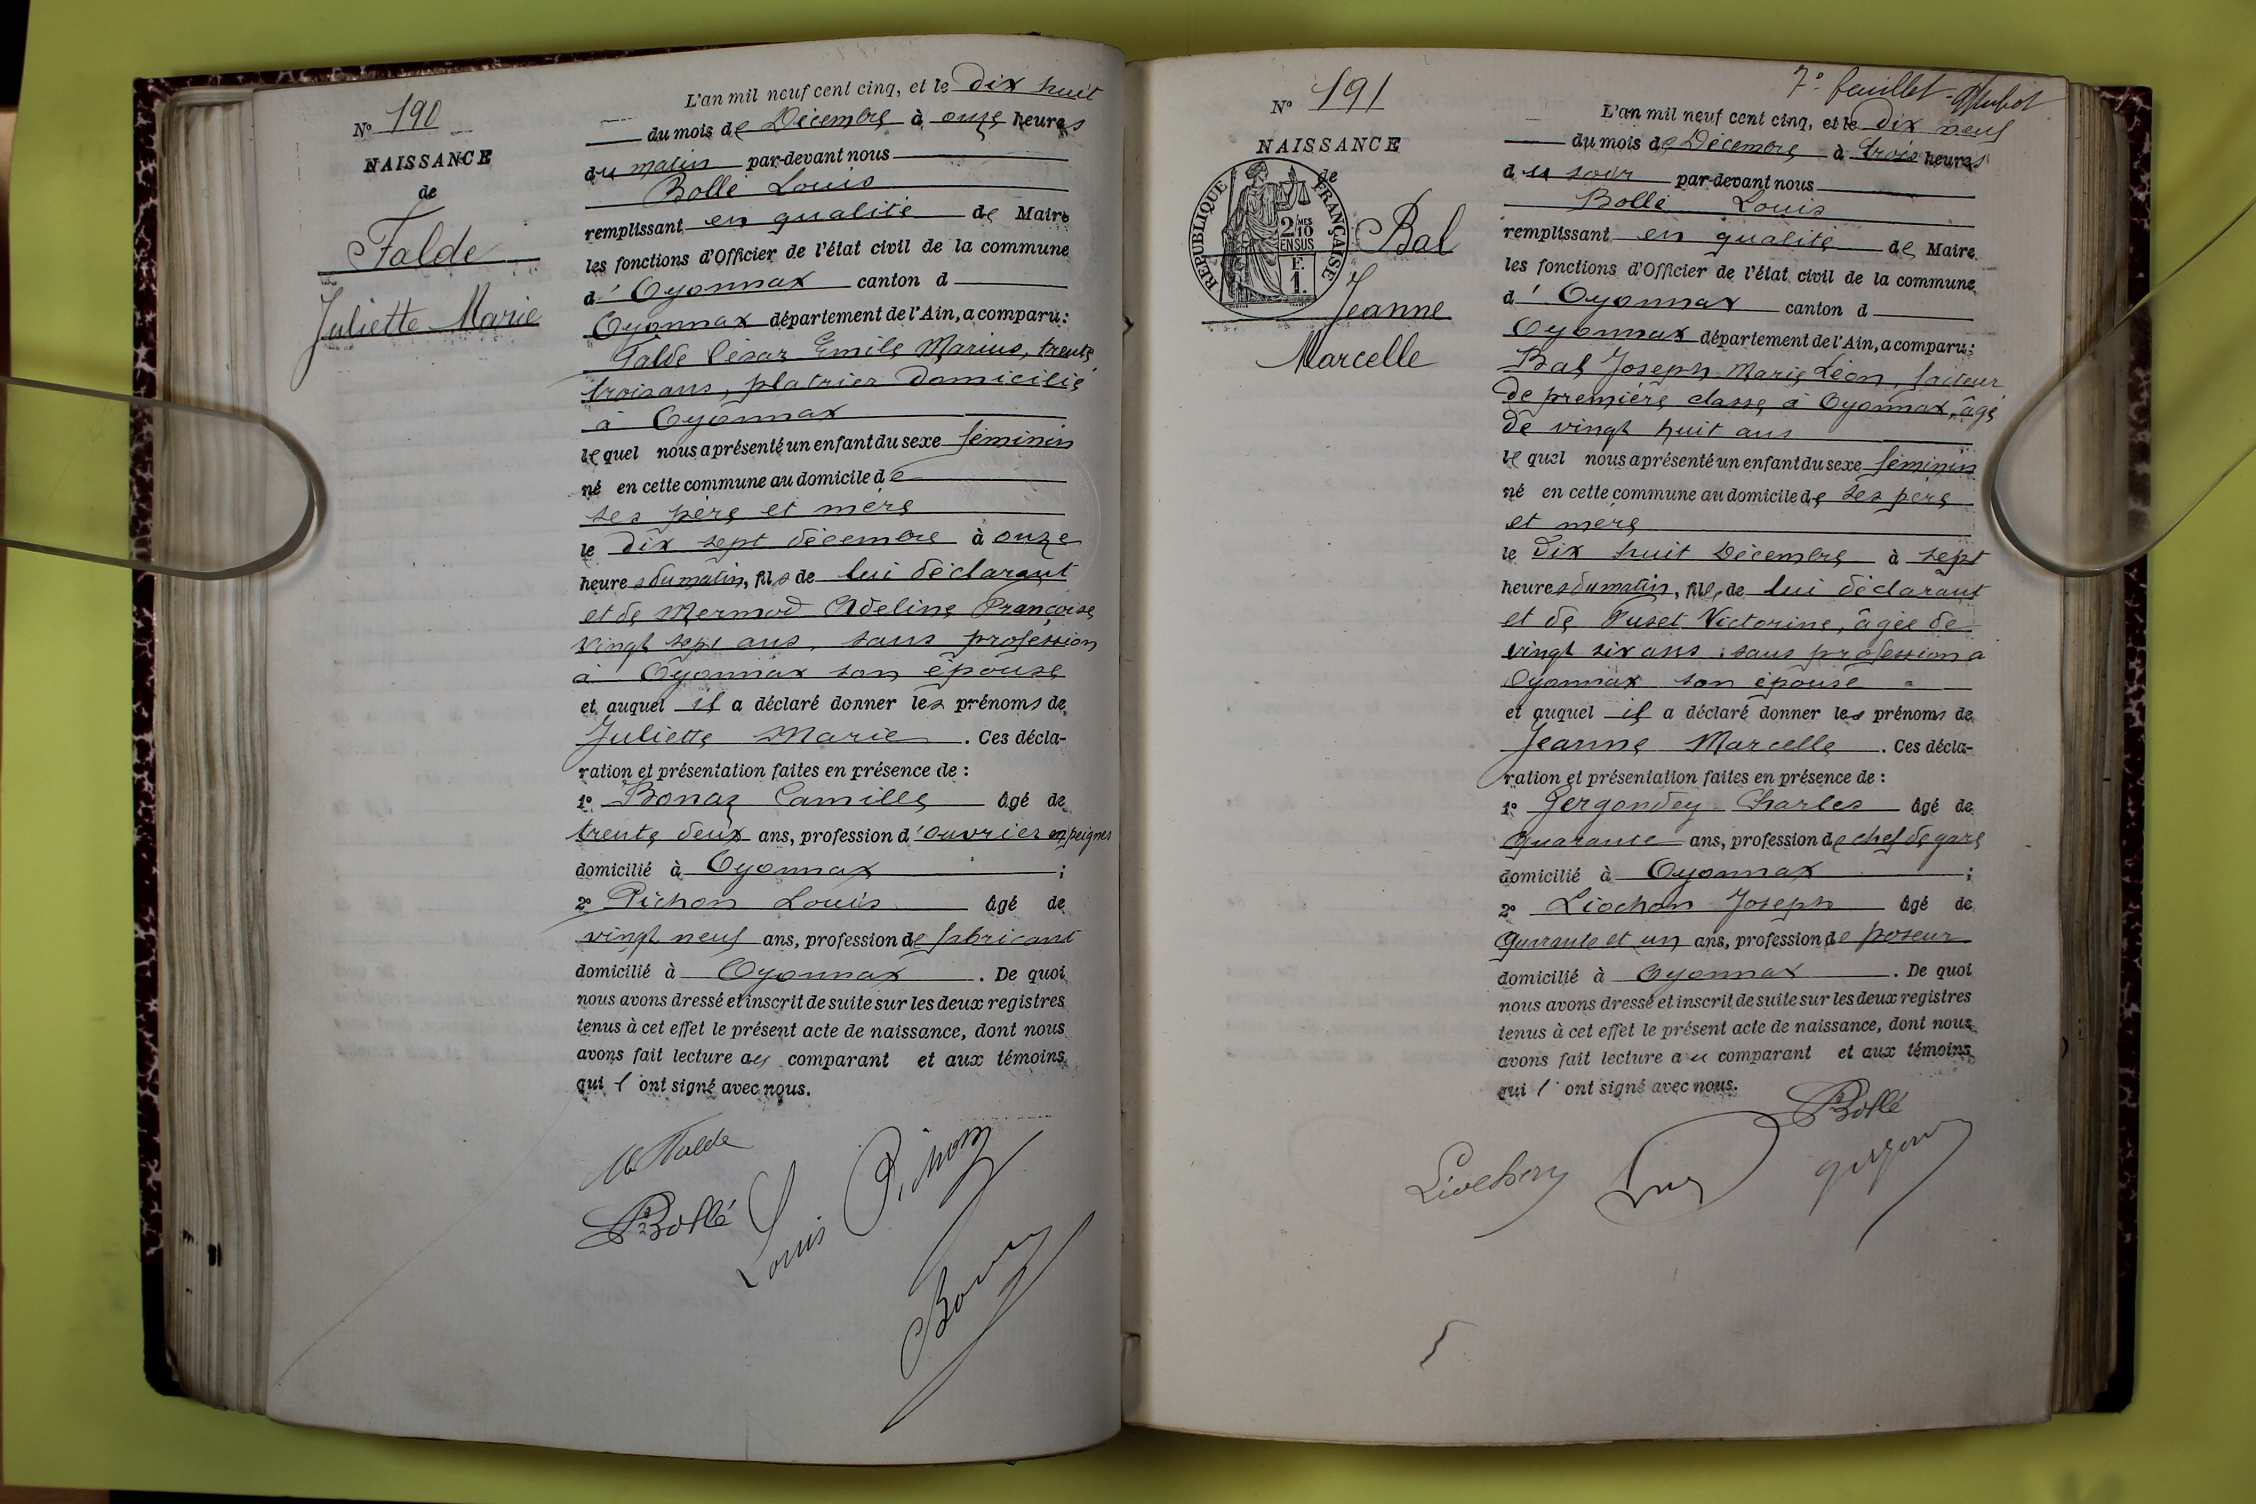 N° 190
NAISSANCE
de
Falde
Juliette Marie
L'an mil neuf cent cinq, et le dix huit
du mois de Décembre à onze heures
du matin par-devant nous
Bollé Louis
remplissant en qualité de Maire
les fonctions d'Officier de l'état civil de la commune
d'Oyonnax canton d
Oyonnax département de l'Ain, a comparu:
Falde César Emile Marius, trente
trois ans, platrier domicilié
à Oyonnax
lequel nous a présenté un enfant du sexe féminin
né en cette commune au domicile de
ses père et mère
le dix sept décembre à onze
heures du matin, fils de lui déclarant
et de Mermod Adeline Françoise
vingt sept ans, sans profession
à Oyonnax son épouse
et auquel il a déclaré donner les prénoms de
Juliette Marie . Ces décla-
ration et présentation faites en présence de :
1° Bonaz Camille âgé de
trente deux ans, profession d'ouvrier en peignes
domicilié à Oyonnax ;
2° Pichon Louis âgé de
vingt neuf ans, profession de fabricant
domicilié à Oyonnax . De quoi
nous avons dressé et inscrit de suite sur les deux registres
tenus à cet effet le présent acte de naissance, dont nous
avons fait lecture au comparant et aux témoins
qui l'ont signé avec nous.
Falde
Bollé
Louis Pichon
Bonaz
7e feuillet
N° 191
NAISSANCE
de
REPUBLIQUE FRANÇAISE
2/10 MES
EN SUS
F.
1.
Bal
Jeanne
Marcelle
L'an mil neuf cent cinq, et le dix neuf
du mois de Décembre à trois heures
du soir par-devant nous
Bollé Louis
remplissant en qualité de Maire
les fonctions d'Officier de l'état civil de la commune
d'Oyonnax canton d
Oyonnax département de l'Ain, a comparu:
Bal Joseph Marie Léon, facteur
de première classe à Oyonnax, âgé
de vingt huit ans
lequel nous a présenté un enfant du sexe féminin
né en cette commune au domicile de ses père
et mère
le dix huit Décembre à sept
heures du matin, fils de lui déclarant
et de Puset Victorine, âgée de
vingt six ans, sans profession à
Oyonnax son épouse
et auquel il a déclaré donner les prénoms de
Jeanne Marcelle . Ces décla-
ration et présentation faites en présence de :
1° Gergondey Charles âgé de
quarante ans, profession de chef de gare
domicilié à Oyonnax ;
2° Liochon Joseph âgé de
quarante et un ans, profession de poseur
domicilié à Oyonnax . De quoi
nous avons dressé et inscrit de suite sur les deux registres
tenus à cet effet le présent acte de naissance, dont nous
avons fait lecture au comparant et aux témoins
qui l'ont signé avec nous.
Bollé
Liochon